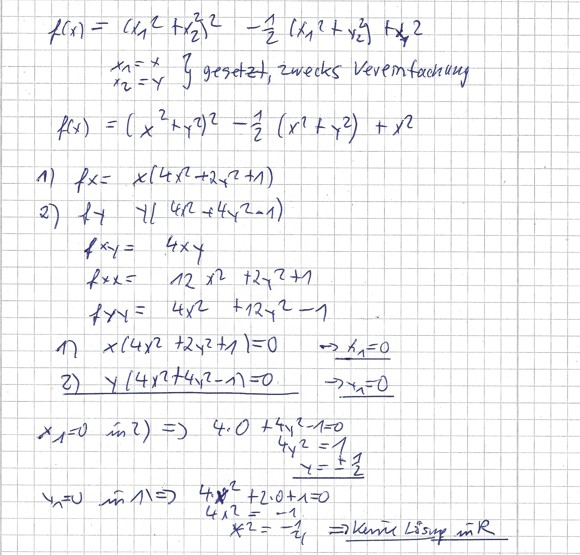 f(x) = (x₁² + x₂²)² - 1/2 (x₁² + x₂²) + x₁²
x₁ = x
x₂ = y } gesetzt, zwecks Vereinfachung
f(x) = (x² + y²)² - 1/2 (x² + y²) + x²
1) fx = x(4x² + 2y² + 1)
2) fy y(4x² + 4y² - 1)
fxy = 4xy
fxx = 12x² + 2y² + 1
fyy = 4x² + 12y² - 1
1) x(4x² + 2y² + 1) = 0 → x₁ = 0
2) y(4x² + 4y² - 1) = 0 → y₁ = 0
x₁ = 0 in 2) ⇒ 4·0 + 4y² - 1 = 0
4y² = 1
y = ± 1/2
y₁ = 0 in 1) ⇒ 4x² + 2·0 + 1 = 0
4x² = -1
x² = -1/4 ⇒ Keine Lösung in R